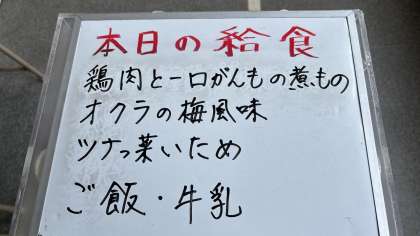 本日の給食
鶏肉と一口がんもの煮もの
オクラの梅風味
ツナっ葉いため
ご飯・牛乳